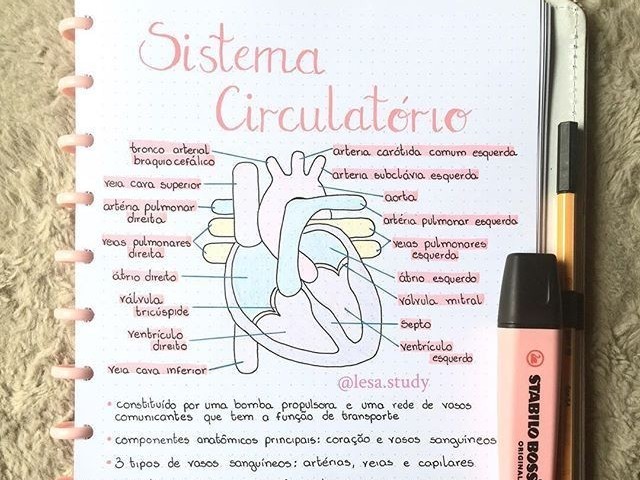 Sistema
Circulatório
tronco arterial
braquiocefálico
veia cava superior
artéria pulmonar
direita
veias pulmonares
direita
átrio direito
válvula
tricúspide
ventrículo
direito
veia cava inferior
arteria carótida comum esquerda
arteria subclávia esquerda
aorta
artéria pulmonar esquerda
veias pulmonares
esquerda
átrio esquerdo
válvula mitral
septo
ventrículo
esquerdo
@lesa.study
• constituído por uma bomba propulsora e uma rede de vasos
comunicantes que tem a função de transporte
• componentes anatômicos principais: coração e vasos sanguíneos
• 3 tipos de vasos sanguíneos: artérias, veias e capilares
STABILO BOSS
ORIGINAL